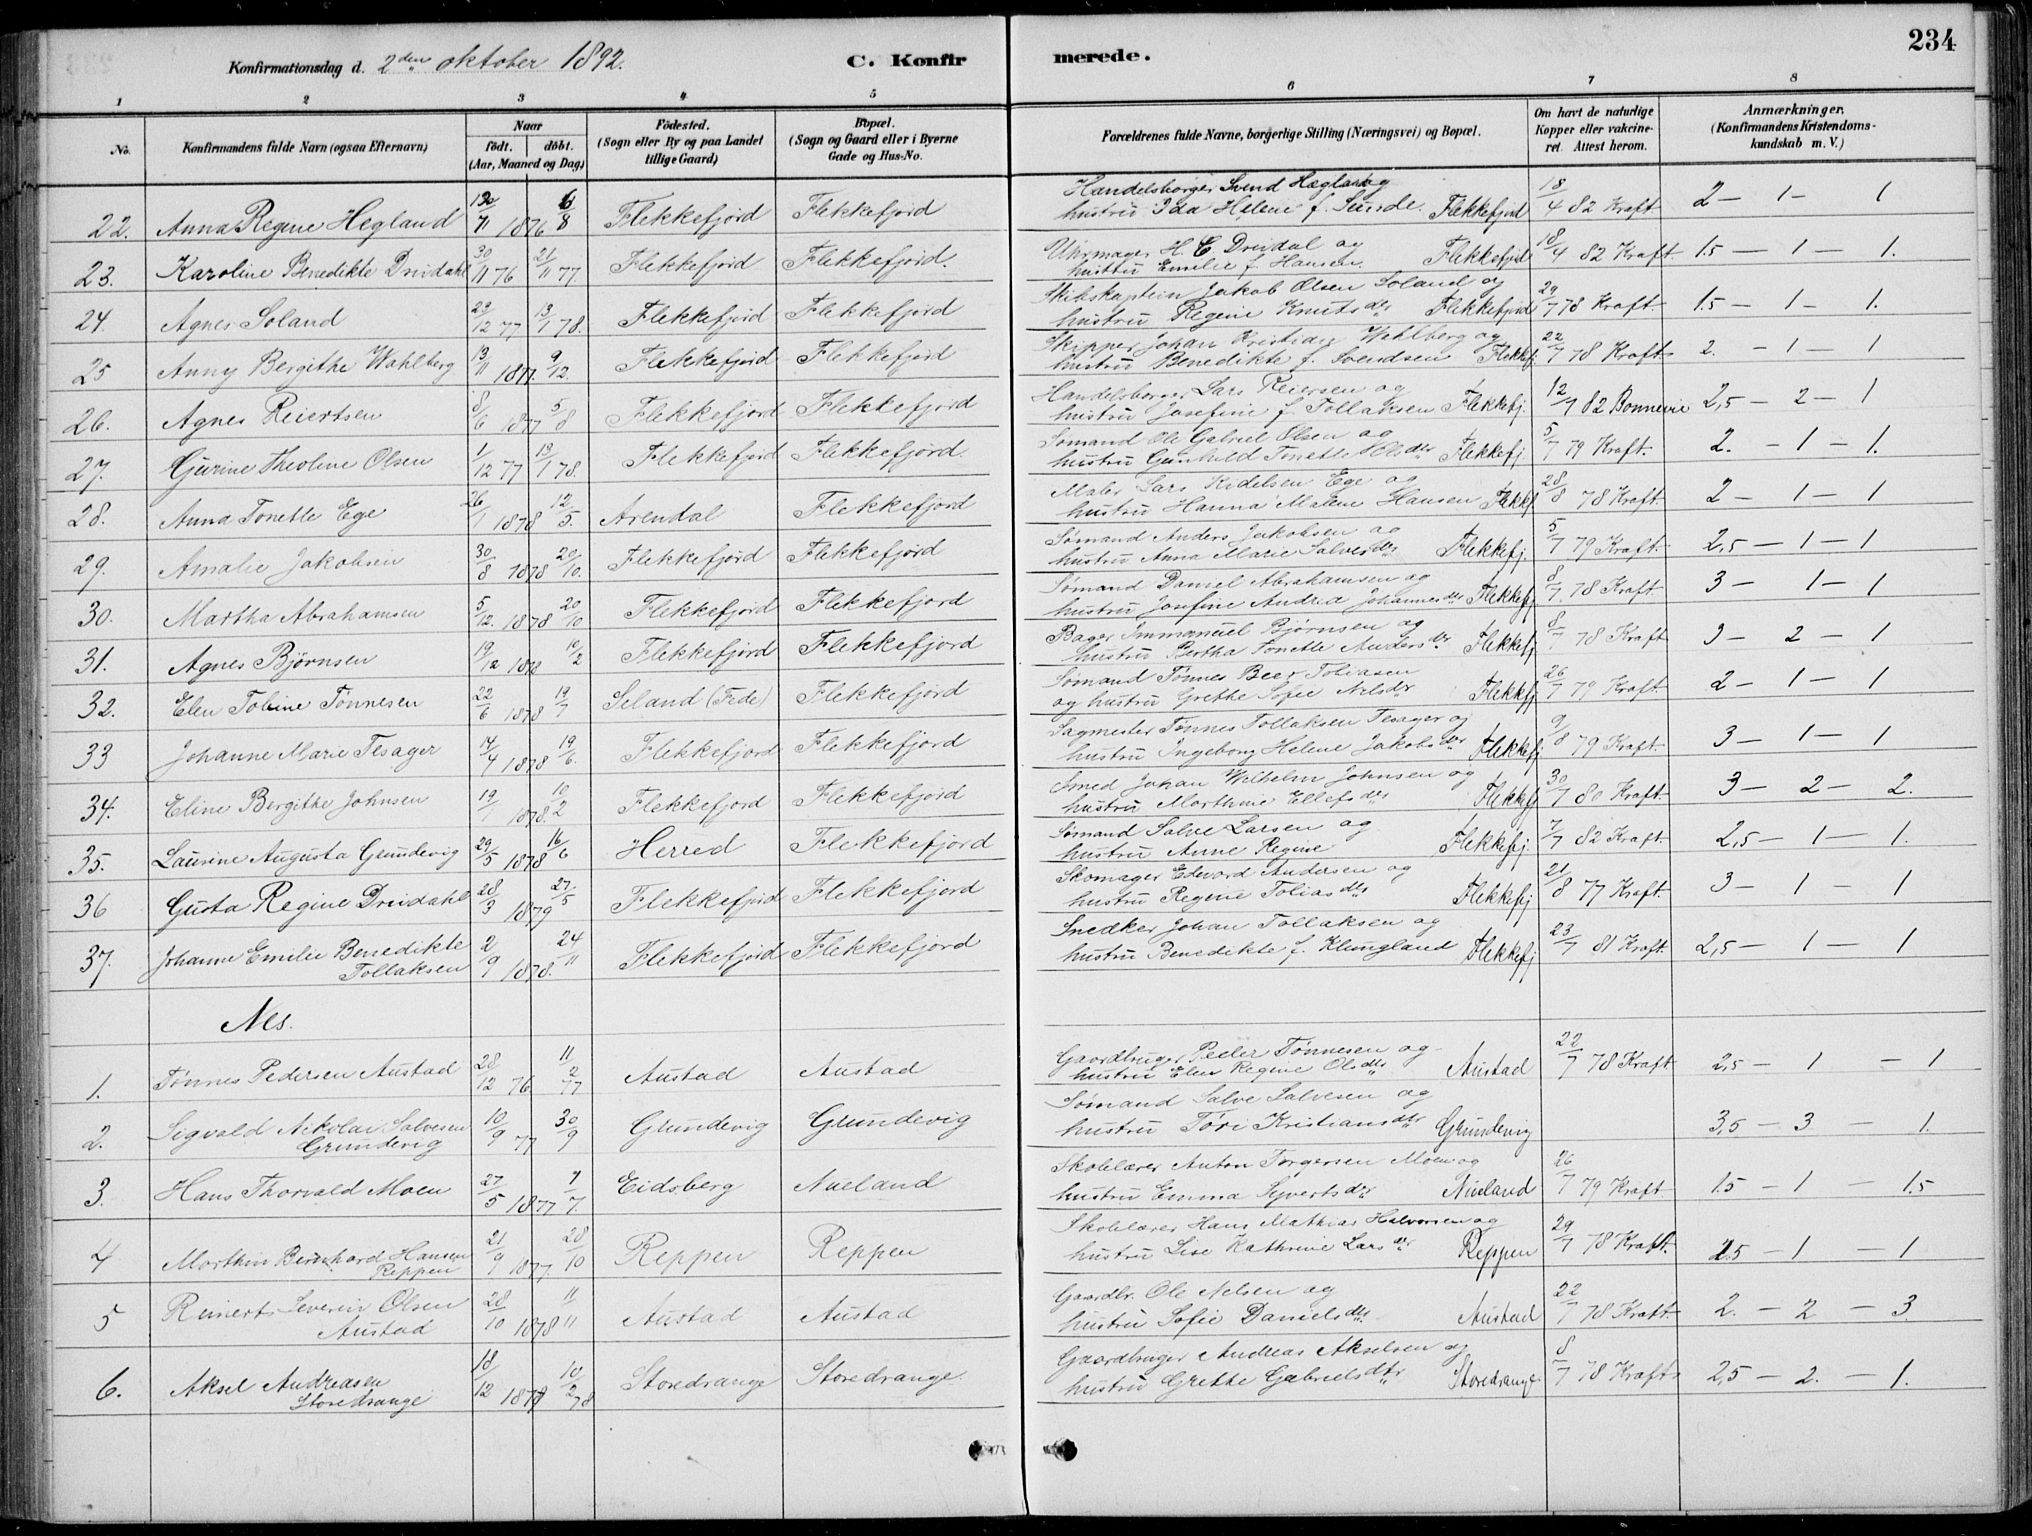 234
Konfirmationsdag d. 2den oktober 1892.
C. Konfirmerede.
1 2 3 4 5 6 7 8
No. Konfirmandens fulde Navn (ogsaa Efternavn) Naar født. døbt. (Aar, Maaned og Dag) Fødested. (Sogn eller By og paa Landet tillige Gaard) Bopæl. (Sogn og Gaard eller i Byerne Gade og Hus-No. Forældrenes fulde Navne, borgerlige Stilling (Næringsvei) og Bopæl. Om havt de naturlige Kopper eller vakcineret. Attest herom. Anmærkninger. (Konfirmandens Kristendomskundskab m. V.)
22. Anna Regine Hegland /11 1876 6/8 Flekkefjord Flekkefjord Handelsborger Svend Hægland og
hustru Ida Helene f. Sunde. Flekkefjord 18/4 82 Kraft 2 — 1 — 1
23. Karoline Benedikte Dreidahl 30/11 76 21/11 77. Flekkefjord Flekkefjord. Uhrmager H. C. Dreidal og
hustru Emelie f. Hansen. Flekkefjord 18/4 82 Kraft 1.5 — 1 — 1
24. Agnes Soland 23/12 77 13/1 78. Flekkefjord Flekkefjord Skibskaptein Jakob Olsen Soland og
hustru Regine Knutsdtr Flekkefjord 29/7 78 Kraft 1.5 — 1 — 1.
25 Anny Bergithe Wahlberg 13/11 1877. 9/12. Flekkefjord Flekkefjord Skipper Johan Kristian Wahlberg og
hustru Benedikte f. Svendsen Flekkefj 22/7 78 Kraft 2. — 1 — 1
26. Agnes Reiertsen 8/6 1877 5/8 Flekkefjord Flekkefjord Handelsborger Lars Reiersen og
hustru Josefine f. Tollaksen Flekkefj. 12/7 82 Bonnevie 2,5 — 2 — 1
27. Gurine Theoline Olsen 1/12 77 13/1 78. Flekkefjord Flekkefjord. Sømand Ole Gabriel Olsen og
hustru Gunhild Tonette Olsdtr Flekkefj. 5/7 79 Kraft. 2. — 1 — 1.
28. Anna Tonette Ege 26/1 1878 12/5. Arendal Flekkefjord Maler Lars Kidelsen Ege og
hustru Hanna Malene Hansen Flekkf. 28/8 78 Kraft 2 — 1 — 1
29. Amalie Jakobsen 30/8 1878 20/10. Flekkefjord Flekkefjord Sømand Anders Jakobsen og
hustru Anna Marie Salvesdtr Flekkefj. 5/7 79 Kraft. 2,5 — 1 — 1
30. Martha Abrahamsen 5/12. 1878 20/10 Flekkefjord Flekkefjord Sømand Daniel Abrahamsen og
hustru Josefine Andrea Johannesdtr Flekkefj 8/7. 78 Kraft 3 — 1 — 1
31. Agnes Bjørnsen 19/12 1878 10/2 Flekkefjord Flekkefjord Bager Immanuel Bjørnsen og
hustru Bertha Tonette Andersdtr Flekkefj 8/7 78 Kraft 3 — 2 — 1
32. Elen Tobine Tønnesen 22/6 1878 19/7 Seland (Fede) Flekkefjord Sømand Tønnes Beer Tobiasen
og hustru Grethe Sofie Nelsdtr Flekkefj 26/7 79 Kraft 2 — 1 — 1
33 Johanne Marie Tesager 14/4 1878 19/6. Flekkefjord Flekkefjord Sagmester Tønnes Tollaksen Tesager og
hustru Ingeborg Helene Jakobsdtr Flekkefj. 9/8 79 Kraft 3 — 1 — 1
34. Eline Bergithe Johnsen 19/1 1878. 10/2 Flekkefjord Flekkefjord Smed Johan Wilhelm Johnsen og
hustru Marthine Ellefsdtr Flekkefj 30/7 80 Kraft. 3 — 2 — 2.
35. Laurine Augusta Grundevig 29/5 1878 16/6 Herred Flekkefjord Sømand Salve Larsen og
hustru Anne Regine Flekkefj. 7/7 82 Kraft. 2,5 — 1 — 1.
36 Gusta Regine Dreidahl 28/3 1879 27/5 Flekkefjord Flekkefjord Skomager Edvard Andersen og
hustru Regine Tobiasdtr Flekkefj 21/8 77 Kraft. 3 — 1 — 1
37. Johanne Emilie Benedikte
Tollaksen 2/9 1878. 24/11 Flekkefjord Flekkefjord Snedker Johan Tollaksen og
hustru Benedikte f. Klungland Flekkefj 23/7 81 Kraft. 2,5 — 1 — 1
Nes.
1. Tønnes Pedersen Austad 28/12 76 11/2 77 Austad Austad Gaardbruger Peder Tønnesen og
hustru Elen Regine Olsdtr Austad 22/7 78 Kraft 2,5 — 1 — 1
2. Sigvald Nikolai Salvesen
Grundevig 10/9 77 30/9 Grundevig Grundevig Sømand Salve Salvesen og
hustru Tøri Kristiansdtr Grundevig 3,5 — 3 — 1.
3. Hans Thorvald Moen 27/5 1877 7/7. Eidsberg Nueland Skolelærer Anton Torgersen Moen og
hustru Emma Syvertsdtr Nueland 26/7 79 Kraft 1.5 — 1 — 1.5
4 Marthin Bernhard Hansen
Reppen 21/9 1877. 28/10 Reppen Reppen Skolelærer Hans Mathias Halvorsen og
hustru Lise Kathrine Larsdtr Reppen 29/7 78 Kraft. 2.5 — 1 — 1
5 Reinert Severin Olsen
Austad 28/10 1878 11/11 Austad Austad Gaardbr. Ole Nelsen og
hustru Sofie Danielsdtr. Austad 22/7 78 Kraft 2. — 2 — 3.
6. Aksel Andreasen
Storedrange 18/12 1877 10/2 78 Storedrange Storedrange. Gaardbruger Andreas Akselsen og
hustru Grethe Gabrielsdtr Storedrange 8/7 78 Kraft 2,5 — 2. — 1.